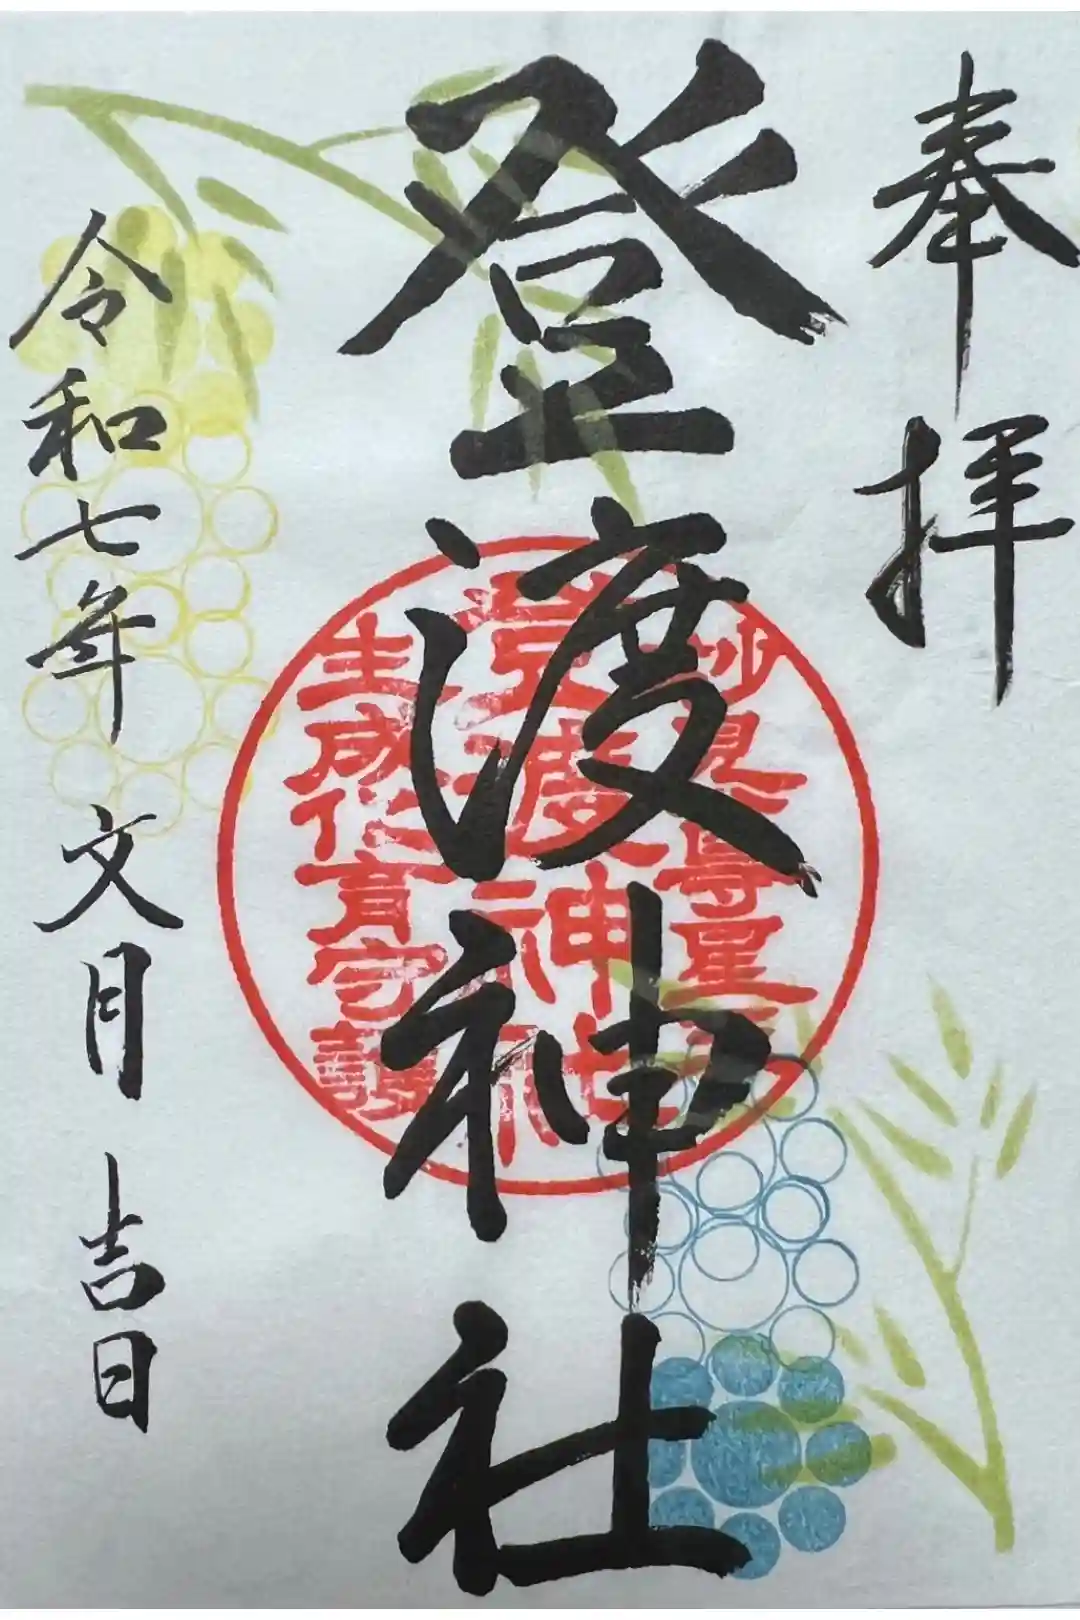 奉拝
登渡神社
妙見尊星
登渡神社
生成化育守護
令和七年 文月 吉日